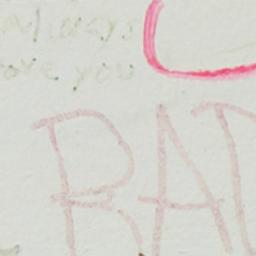 always
love you
RAD